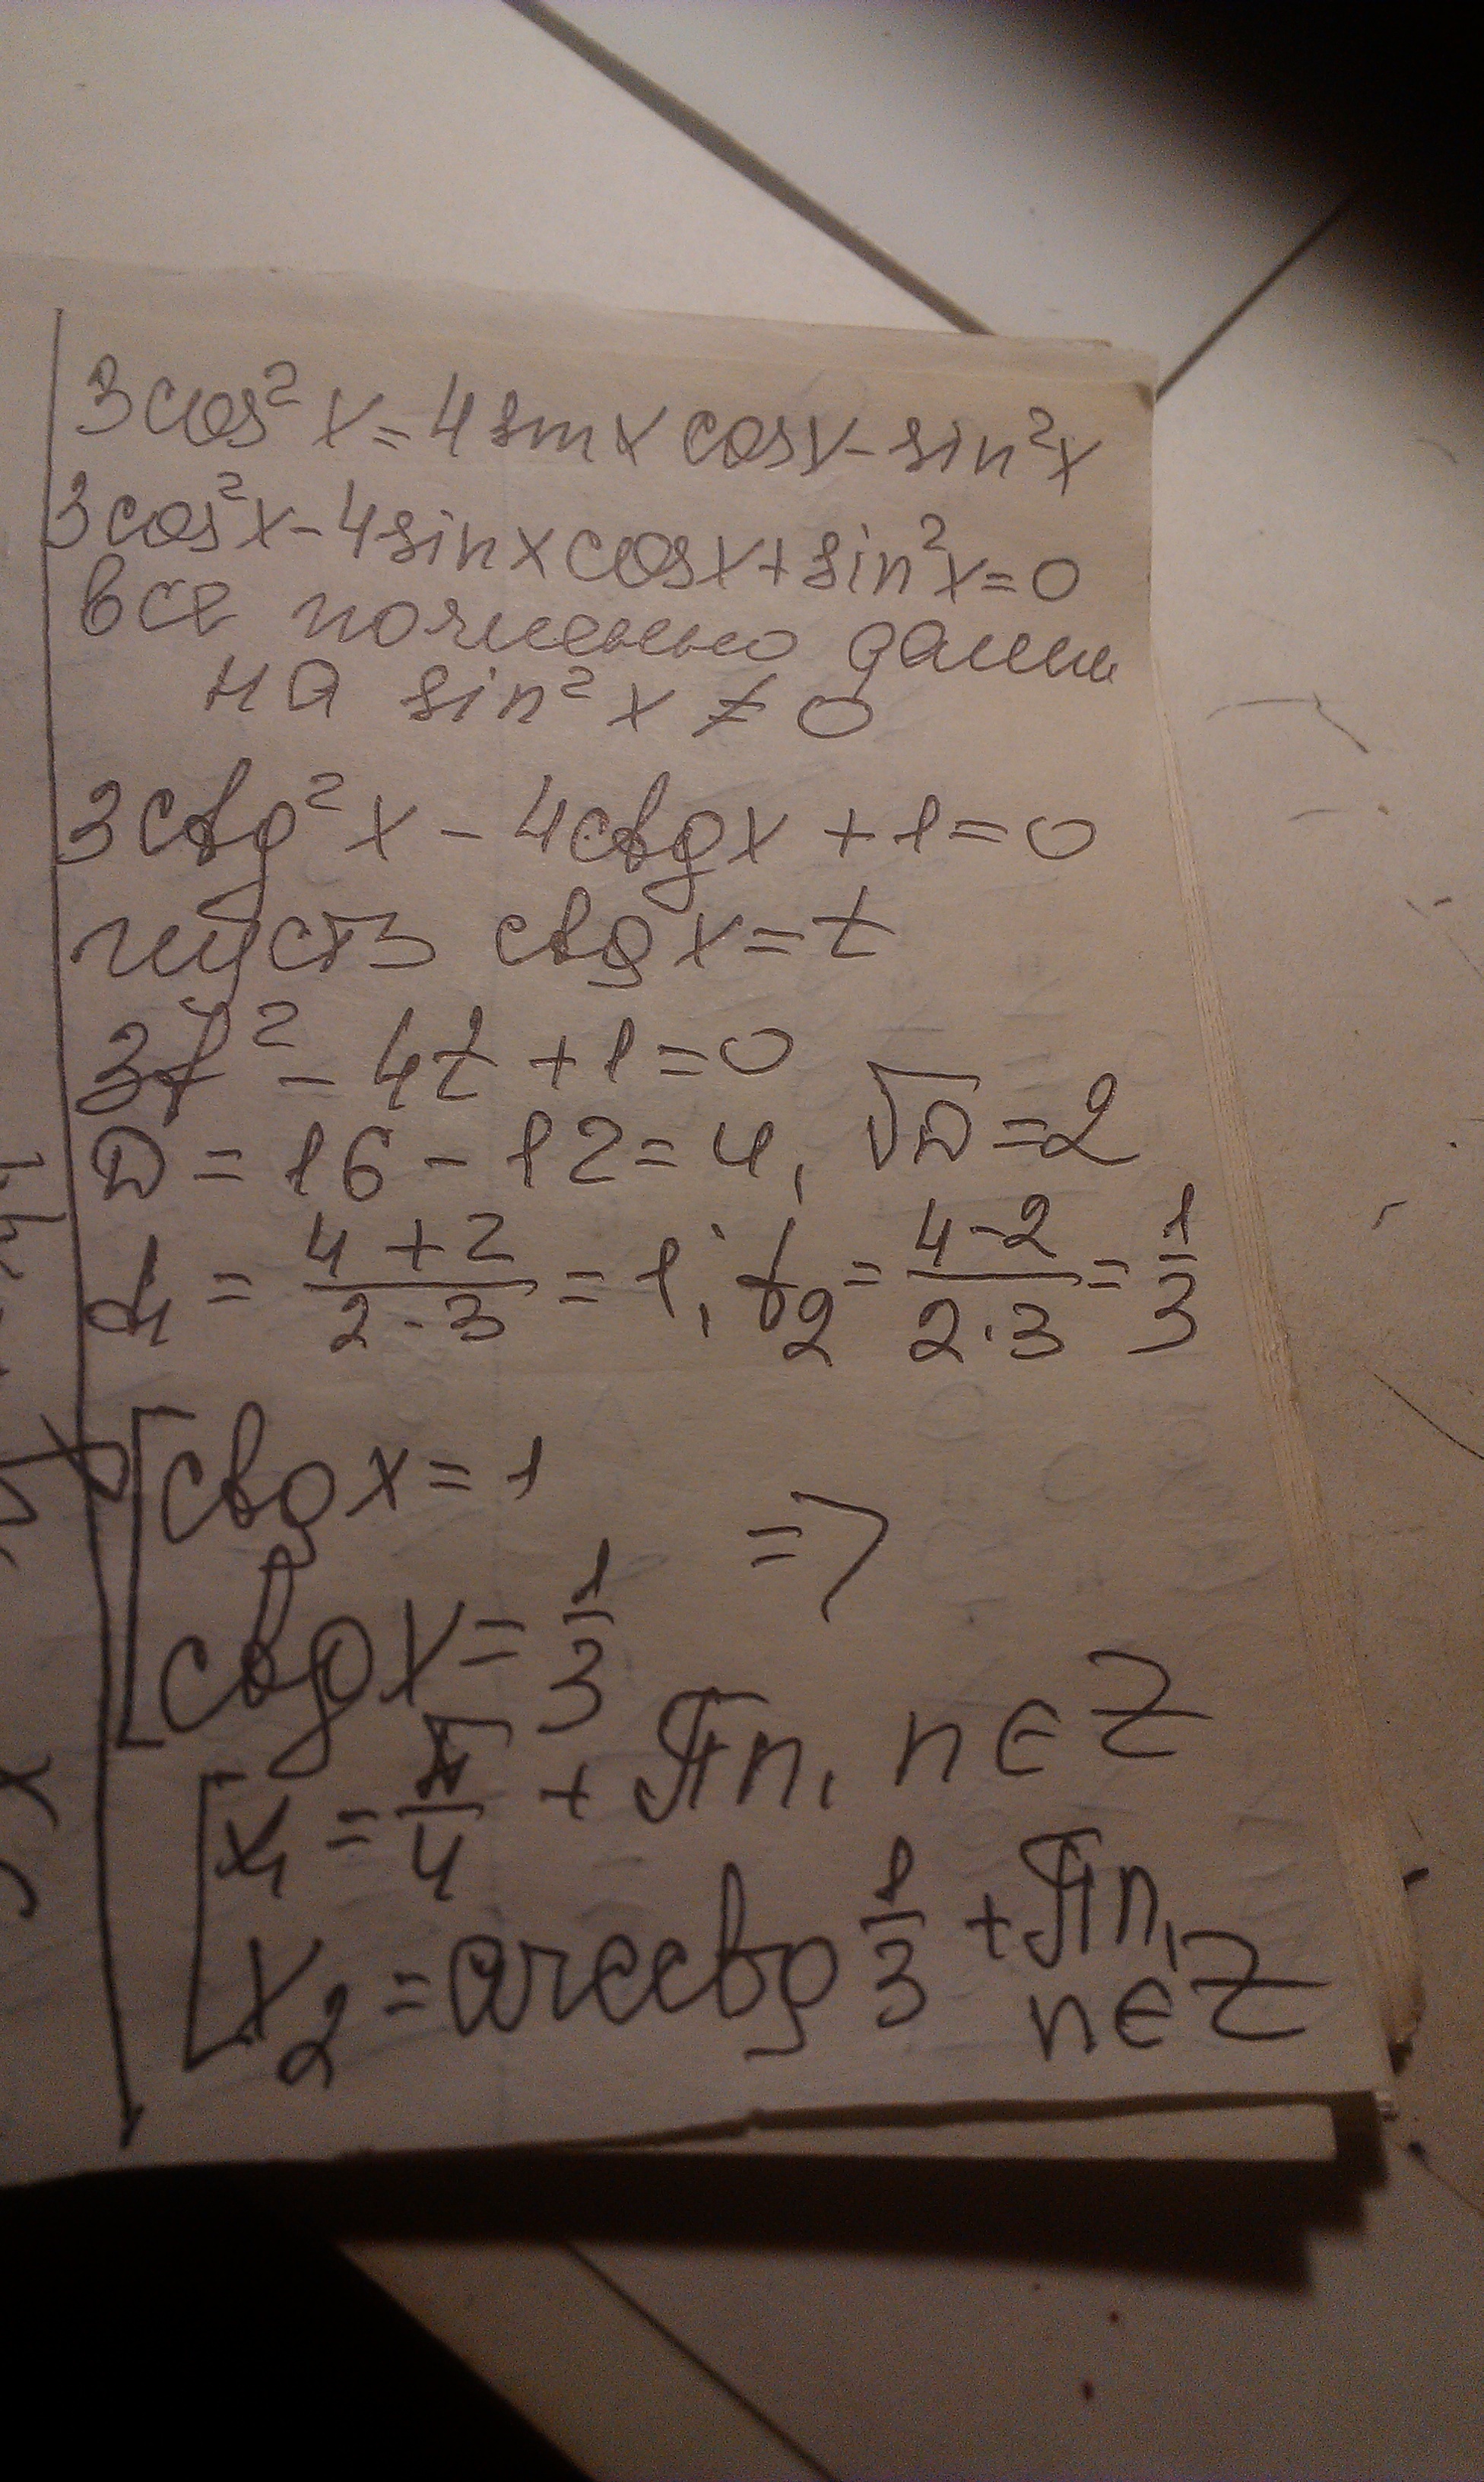 3cos²x=4sinx cosx-sin²x
3cos²x-4sinxcosx+sin²x=0
все почленно делим
на sin²x≠0
3ctg²x-4ctgx+1=0
пусть ctgx=t
3t²-4t+1=0
D=16-12=4, √D=2
t₁=(4+2)/(2·3)=1; t₂=(4-2)/(2·3)=1/3
[ctgx=1
ctgx=1/3 =>
[x₁=π/4+πn, n∈Z
x₂=arcctg 1/3+πn,
n∈Z